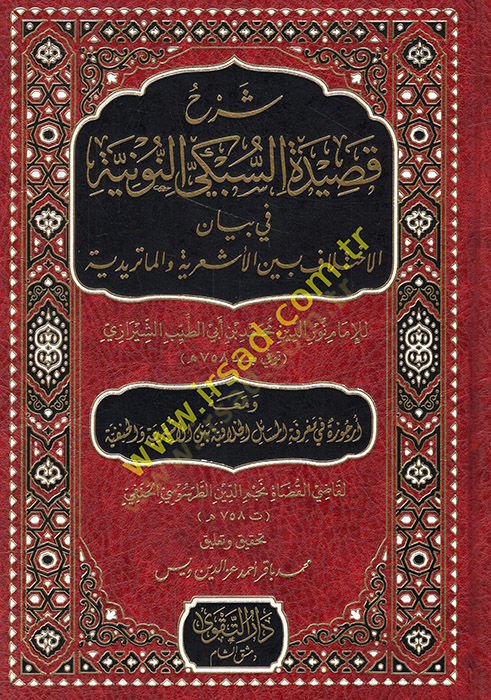 شرح
قصيدة السبكي النونية
في بيان
الاختلاف بين الأشعرية والماتريدية
للإمام نور الدين محمد بن أبي الطيب الشيرازي
٧٥٨هـ)
ومعه
أرجوزة في معرفة المسائل الخلافية بين الأشعرية والحنفية
لقاضي القضاة نجم الدين الطرسوسي الحنفي
(ت ٧٥٨ هـ)
تحقيق وتعليق
محمد باقر أحمد عز الدين ويس
دار التقوى
دمشق الشام
www.irsad.com.tr